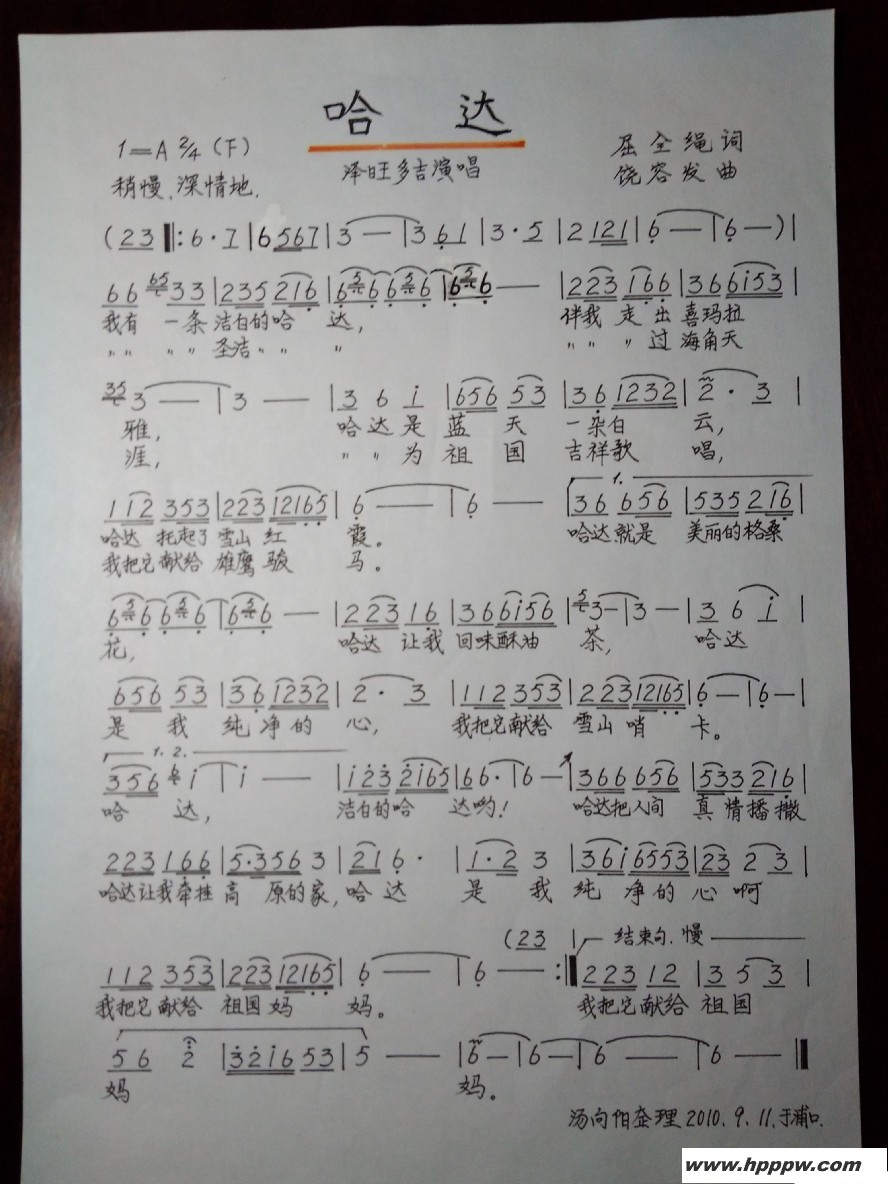 哈 达
1=A 2/4 (下)
稍慢、深情地.
泽旺多吉演唱
屈全绳词
饶容发曲
(23 ‖: 6·7 | 6567 | 3 — | 3 61 | 3·5 | 2 121 | 6 — | 6 — ) |
66 65 33 | 235 216 | 6 5 6 6 5 6 | 6 5 6 — | 223 166 | 36 6i53 |
我有 一条 洁白的哈 达, 伴我 走 出 喜玛拉
〃 〃 〃 〃 圣洁 〃 〃 〃 〃 〃 〃 过 海角天
35 3 — | 3 — | 3 6 i | 656 53 | 36 1232 | 2 · 3 |
雅, 哈达是 蓝 天 一朵白 云,
涯, 〃 〃 为 祖 国 吉祥歌 唱,
112 353 | 223 12165 | 6 — | 6 — | 1. 36 656 | 535 216 |
哈达 托起了 雪山 红 霞。 哈达就是 美丽的格桑
我把它献给 雄鹰 骏 马。
6 5 6 6 5 6 | 6 5 6 — | 223 16 | 36 6i56 | 5 3 — | 3 — | 3 6 i |
花, 哈达 让我 回味酥油 茶, 哈达
656 53 | 36 1232 | 2 · 3 | 112 353 | 223 12165 | 6 — | 6 — |
是 我 纯净的 心, 我把它献给 雪山 哨 卡。
1. 2.
356 6 i | i — | i23 2i65 | 66· | 6 — | 366 656 | 533 216 |
哈 达, 洁白的哈 达哟! 哈达把人间 真情播撒
223 166 | 5·356 3 | 21 6· | 1·2 3 | 36i 6553 | 23 2 3 |
哈达让我牵挂 高 原的家, 哈达 是 我 纯 净的 心 啊
(23 | 结束句. 慢
112 353 | 223 12165 | 6 — | 6 — :‖ 223 12 | 3 5 3 |
我把它献给 祖国 妈 妈。 我把它献给 祖国
56 2 | 32i6 53 | 5 — | 6 — | 6 — | 6 — | 6 ‖
妈 妈。
汤向阳整理 2010.9.11.于浦口.
www.hpppw.com